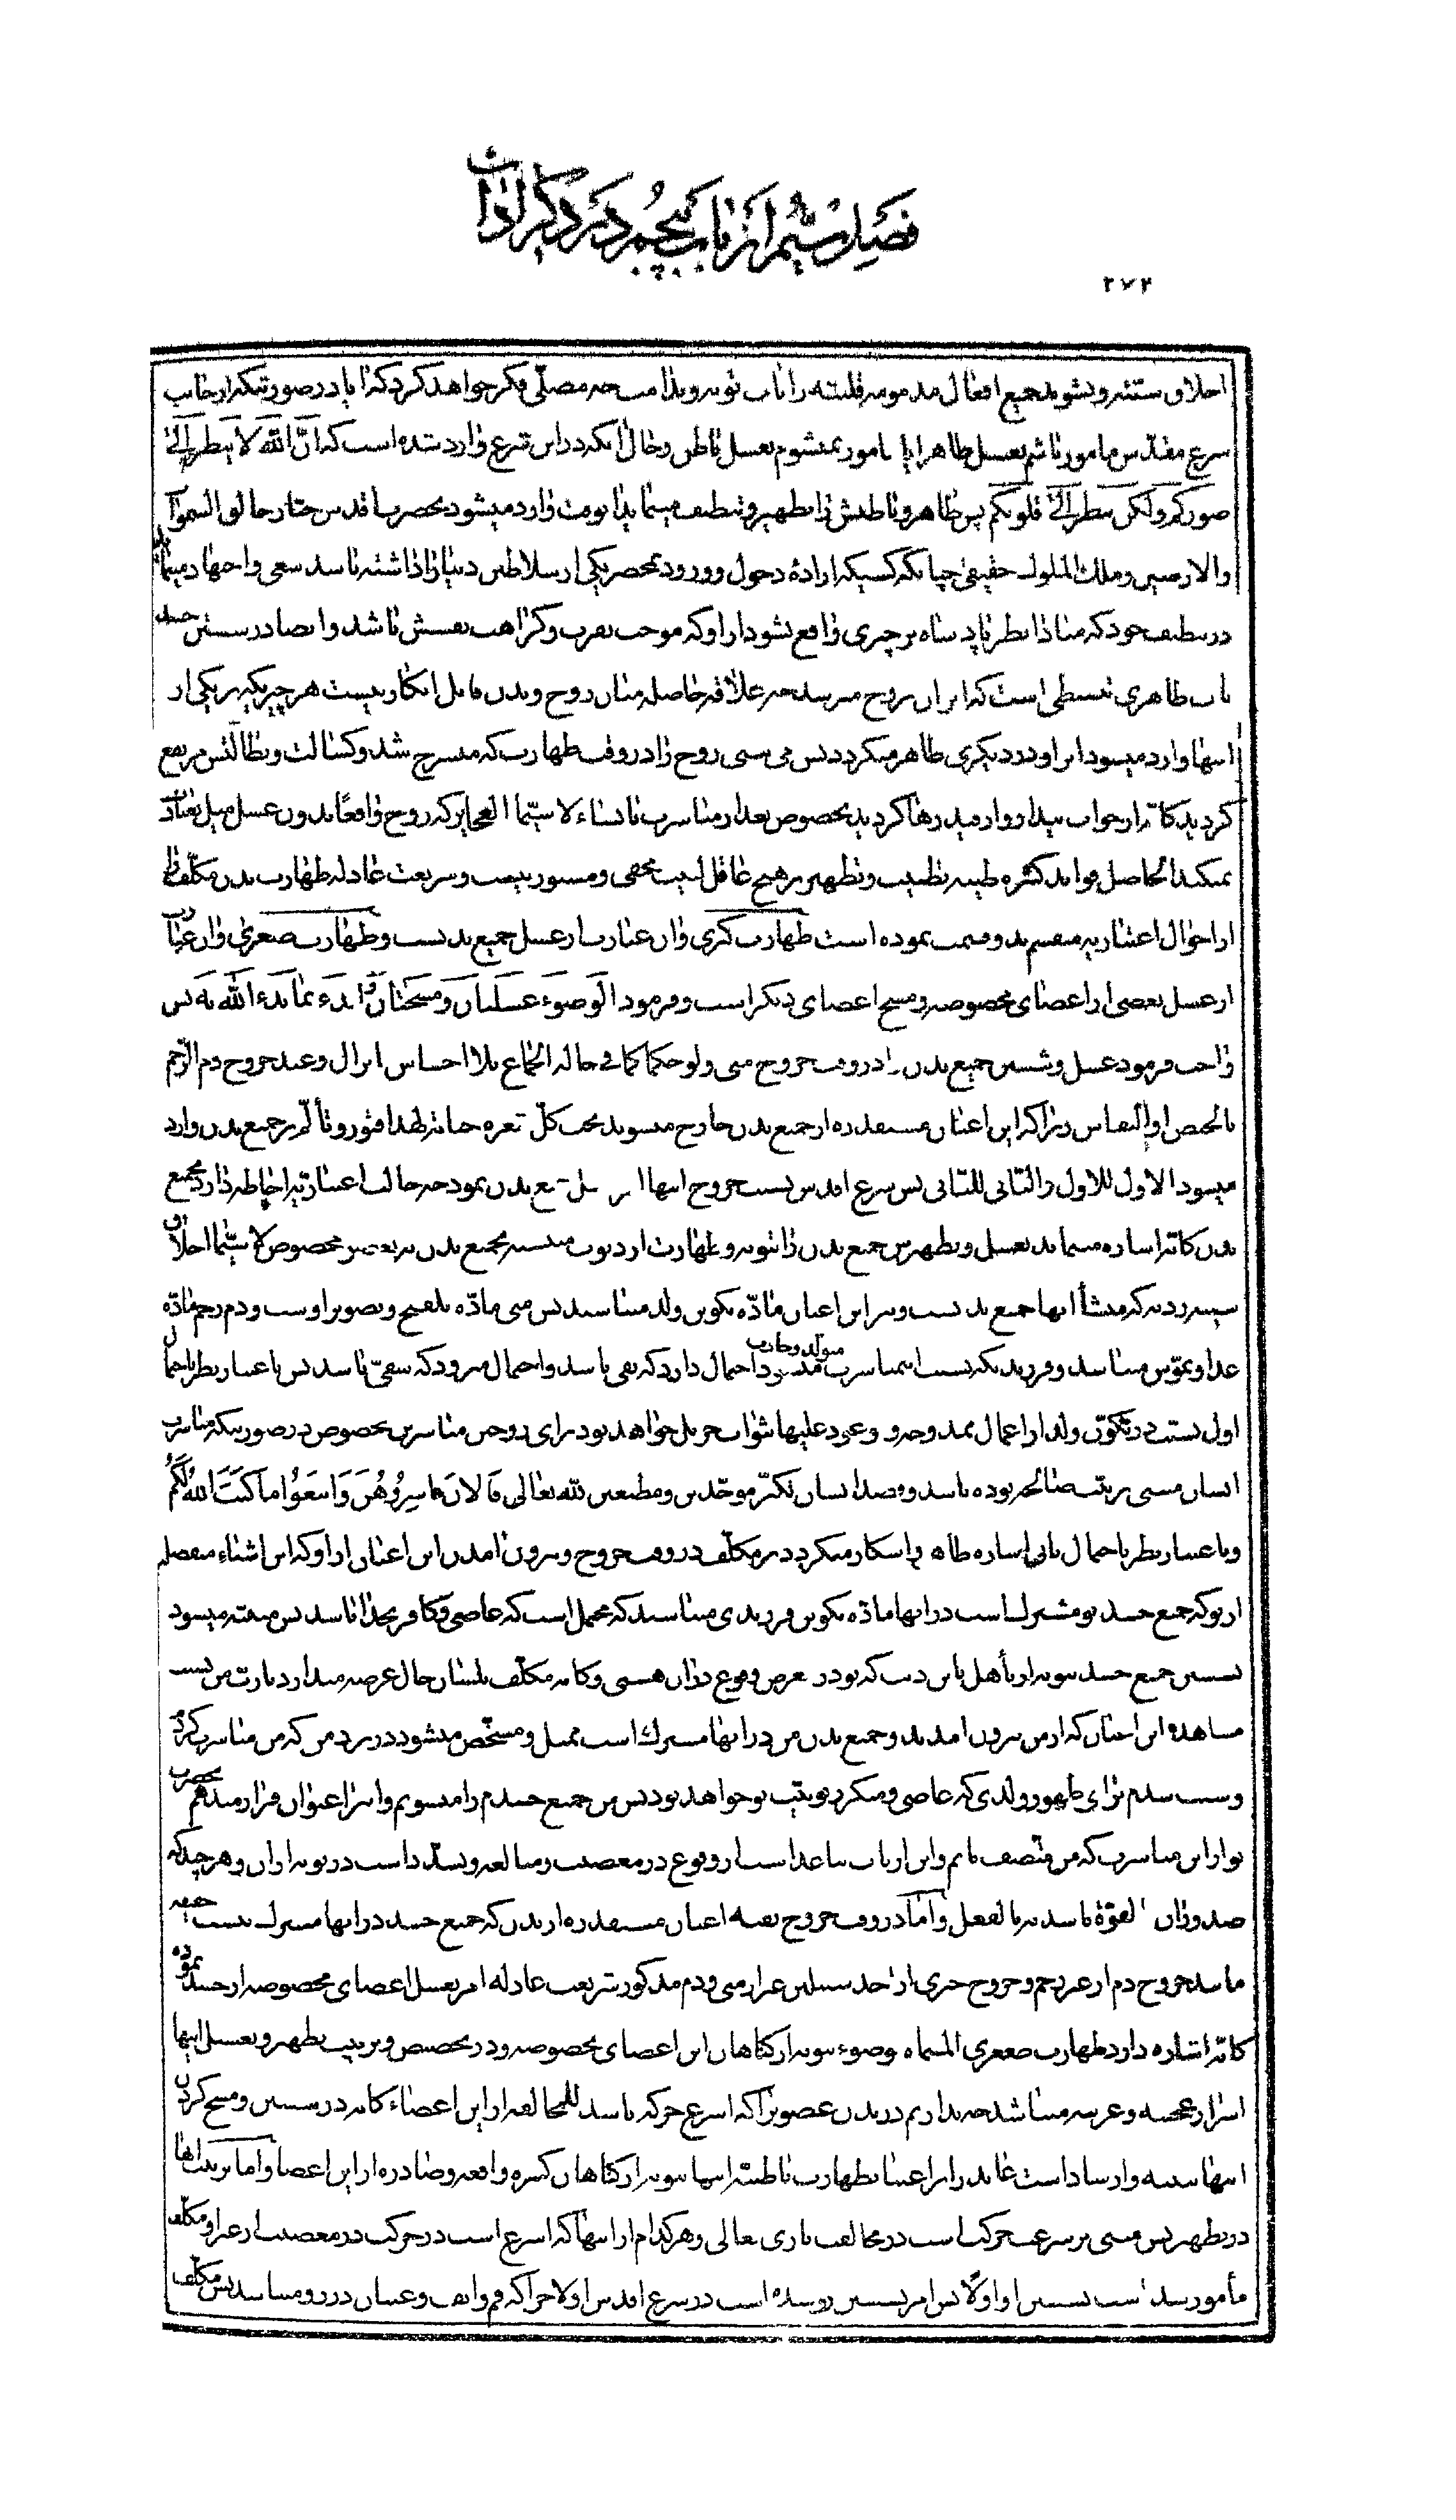 فصل ششم از باب پنجم در ذکر
۲۷۴
اخلاق سیئه و بشوید جمیع افعال مذمومه قلبیه را باب توبه و ندامت چه مصلی فکر خواهد کرد که ایا در صورتیکه از جانب
شرع مقدس مامور باشم بغسل ظاهر ایا مامور نمیشوم بغسل باطن و حال انکه در این شرع وارد شده است که ان الله لا ینظر الی
صورکم ولکن ینظر الی قلوبکم پس ظاهر و باطنش را تطهیر و تنظیف مینماید وارد میشود بمحضر اقدس جناب خالق السموات
والارضین و ملک الملوک حقیقی چنانکه کسیکه اراده دخول و ورود بمحضر یکی از سلاطین دنیا را داشته باشد سعی و اجتهاد مینماید
در تنظیف خود که مبادا نظر پادشاه بر چیزی واقع شود از او که موجب نفرت و کراهت نفسش باشد و ایضا در شستن جسد
باب ظاهری تنشیطی است که اثر ان بروح میرسد چه علاقه حاصله میان روح و بدن قابل انکار نیست هر چیزیکه بر یکی از
اینها وارد میشود اثر او در دیگری ظاهر میگردد پس می بینی روح را در وقت طهارت که منشرح شد و کسالت و بطالتش مرتفع
گردید کانه از خواب بیدار و از قید رها گردید بخصوص بعد از مباشرت با نساء لا سیما العجایز که روح واقعا بدون غسل میل بعبادت
نمیکند الحاصل فواید کثیره طبیه تنظیف و تطهیر بر هیچ عاقل لبیب مخفی و مستور نیست و شریعت عادله طهارت بدن مکلف را
از احوال اعتباریه منقسم بدو قسمت نموده است طهارت کبری و ان عبارت از غسل جمیع بدنست و طهارت صغری و ان عبارت
از غسل بعضی از اعضای مخصوصه و مسح اعضای دیگر است و فرمود الوضوء غسلتان و مسحتان و ابدء بما بدء الله به پس
واجب فرمود غسل و شستن جمیع بدن را در وقت خروج منی ولو حکما کما فی حالة الجماع بلا احساس انزال و عند خروج دم الرحم
بالحیض او النفاس زیرا که این اعیان مستقذره از جمیع بدن خارج میشوند تحت کل شعره جنابة لهذا فتور و تألم بر جمیع بدن وارد
میشود الاول للاول والثانی للثانی پس شرع اقدس بسبب خروج اینها امر بغسل جمیع بدن نمود چه حالت اعتباریه احاطه دارد بجمیع
بدن کانه اشاره مینماید بغسل و تطهیر جمیع بدن را بتوبه و طهارت از ذنوب منتسبه بجمیع بدن نه بعضو مخصوص لا سیما اخلاق
سیئه ردیه که منشأ انها جمیع بدنست و نیز این اعیان ماده تکوین ولد میباشند پس منی ماده تلقیح و تصویر اوست و دم رحم ماده
غذا و نموش میباشد و فرزندیکه بسبب این مباشرت متولد و حادث میشود احتمال دارد که تقی باشد و احتمال میرود که شقی باشد پس باعتبار نظر باحتمال
اول بسبب در تکون ولد از اعمال ممدوحه و موعود علیها ثواب جزیل خواهد بود برای زوجین مباشرین بخصوص در صورتیکه مباشرت
انسان مبنی بر نیت صالحه بوده باشد و قصد انسان تکثر موحدین و مطیعین لله تعالی فالان باشروهن وابتغوا ما کتب الله لکم
و باعتبار نظر باحتمال ثانی اشاره ظاهر و اشکار میگردد بر مکلف در وقت خروج و بیرون امدن این اعیان از او که این اشیاء منفصله
از تو که جمیع جسد تو مشترک است در انها ماده تکوین فرزندی میباشند که محتمل است که عاصی و کافر بخدا باشد پس متنبه میشود
بشستن جمیع جسد بتوبه از تأهل باین ذنب که تو در معرض وقوع در ان هستی و کانه مکلف بلسان حال عرضه میدارد یارب من بسبب
مشاهده این اعیان که از من بیرون امدند و جمیع بدن من در انها مشترک است ممثل و مشخص میشود در نزد من که من مباشرت کردم
و سبب شدم برای ظهور ولدی که عاصی و منکر ربوبیت تو خواهد بود پس من جمیع جسدم را میشویم و این را عنوان قرار میدهم بحضرت
تو از این مباشرت که من متصف بانم و این از باب تباعد است از وقوع در معصیت و مبالغه و تشدید است در توبه از ان و هر چند که
صدور ان بالقوة باشد نه بالفعل و اما در وقت خروج بقیه اعیان مستقذره از بدن که جمیع جسد در انها مشترک نیست حقیقه
مانند خروج دم از غیر رحم و خروج چیزی از احد سبیلین غیر از منی و دم مذکور شریعت عادله امر بغسل اعضای مخصوصه از جسد نموده
کانه اشاره دارد طهارت صغری المسماه بوضوء بتوبه از گناهان این اعضای مخصوصه و در تخصیص و ترتیب تطهیر و بغسل اینها
اسرار عجیبه و غریبه میباشد چه نداریم در بدن عضویرا که اسرع حرکه باشد للمخالفه از این اعضاء کانه در شستن و مسح کردن
اینها تنبیه و ارشاد است عابد را بر اعتنا بطهارت باطنیه اینها بتوبه از گناهان کثیره واقعه و صادره از این اعضا و اما ترتیب انها
در تطهیر پس مبنی بر سرعت حرکت است در مخالفت باری تعالی و هر کدام از اینها که اسرع است در حرکت در معصیت از غیر او مکلف
مأمور شده است بشستن او اولا پس امر بشستن رو شده است در شرع اقدس اولا چرا که فم و انف و عینان در رو میباشد پس مکلف